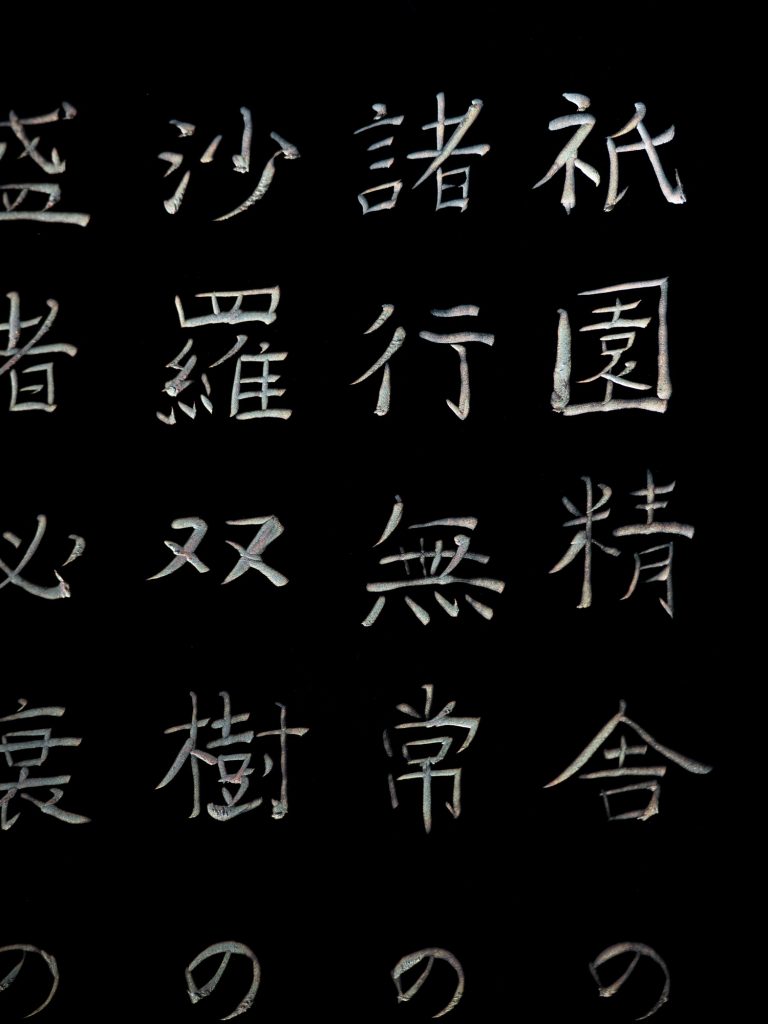 祇園精舎の
諸行無常の
沙羅双樹の
盛者必衰の